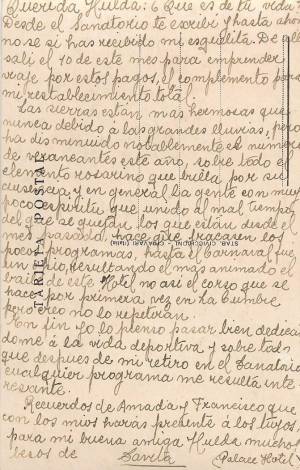 Querida Hulda: ¿Que es de tu vida?
Desde el Sanatorio te escribí y hasta ahora
no se si has recibido mi esquelita. De allí
salí el 10 de este mes para emprender
viaje por estos pagos, el complemento para
mi restablecimiento total.
Las sierras están más hermosas que
nunca debido a las grandes lluvias, pero
ha disminuido notablemente el numero
de veraneantes este año, sobre todo el
elemento rosarino que brilla por su
ausencia, y en general la gente con muy
poco espiritu que unido al mal tiempo
del que se quejan los que están desde el
mes pasado, hace que fracasen los
pocos programas, hasta el Carnaval fue
un frio, resultando el más animado el
baile de este Hotel no así el corso que se
hace por primera vez en la Cumbre
pero creo no lo repetirán.
En fin yo lo pienso pasar bien dedican
dome á la vida deportiva y sobre todo
que despues de mi retiro en el Sanatorio
cualquier programa me resulta inte
resante.
Recuerdos de Amada y Francisco que
con los mios harás presente á los tuyos,
para mi buena amiga Hulda muchos
besos de
Sarita
(Palace Hotel)
TARJETA POSTAL